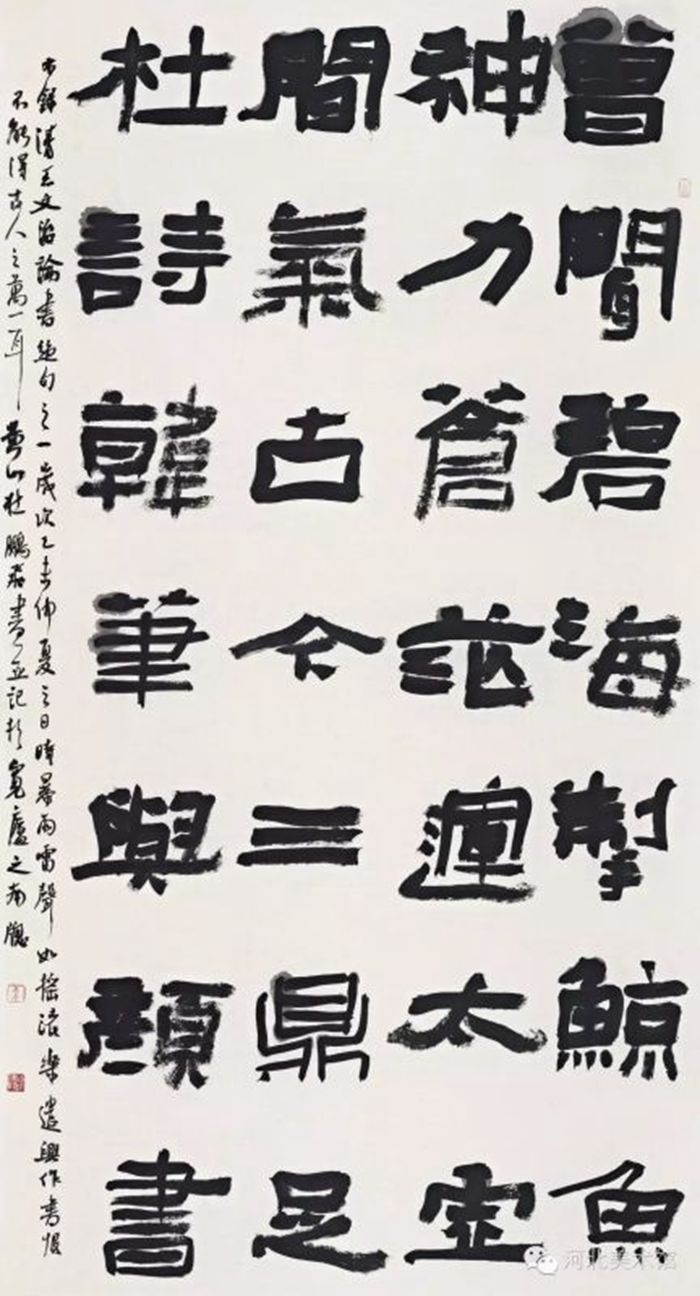 曾聞碧海掣鯨魚
神力蒼茫運太虛
間氣古今三鼎足
杜詩韓筆與顏書
右錄清王文治論書絕句之一歲次乙未仲夏之日時暴雨雷聲如搖滾樂遣興作書恨
不能得古人之萬一耳 山杜鵬 書並記於 廬之南窗
河北美术馆